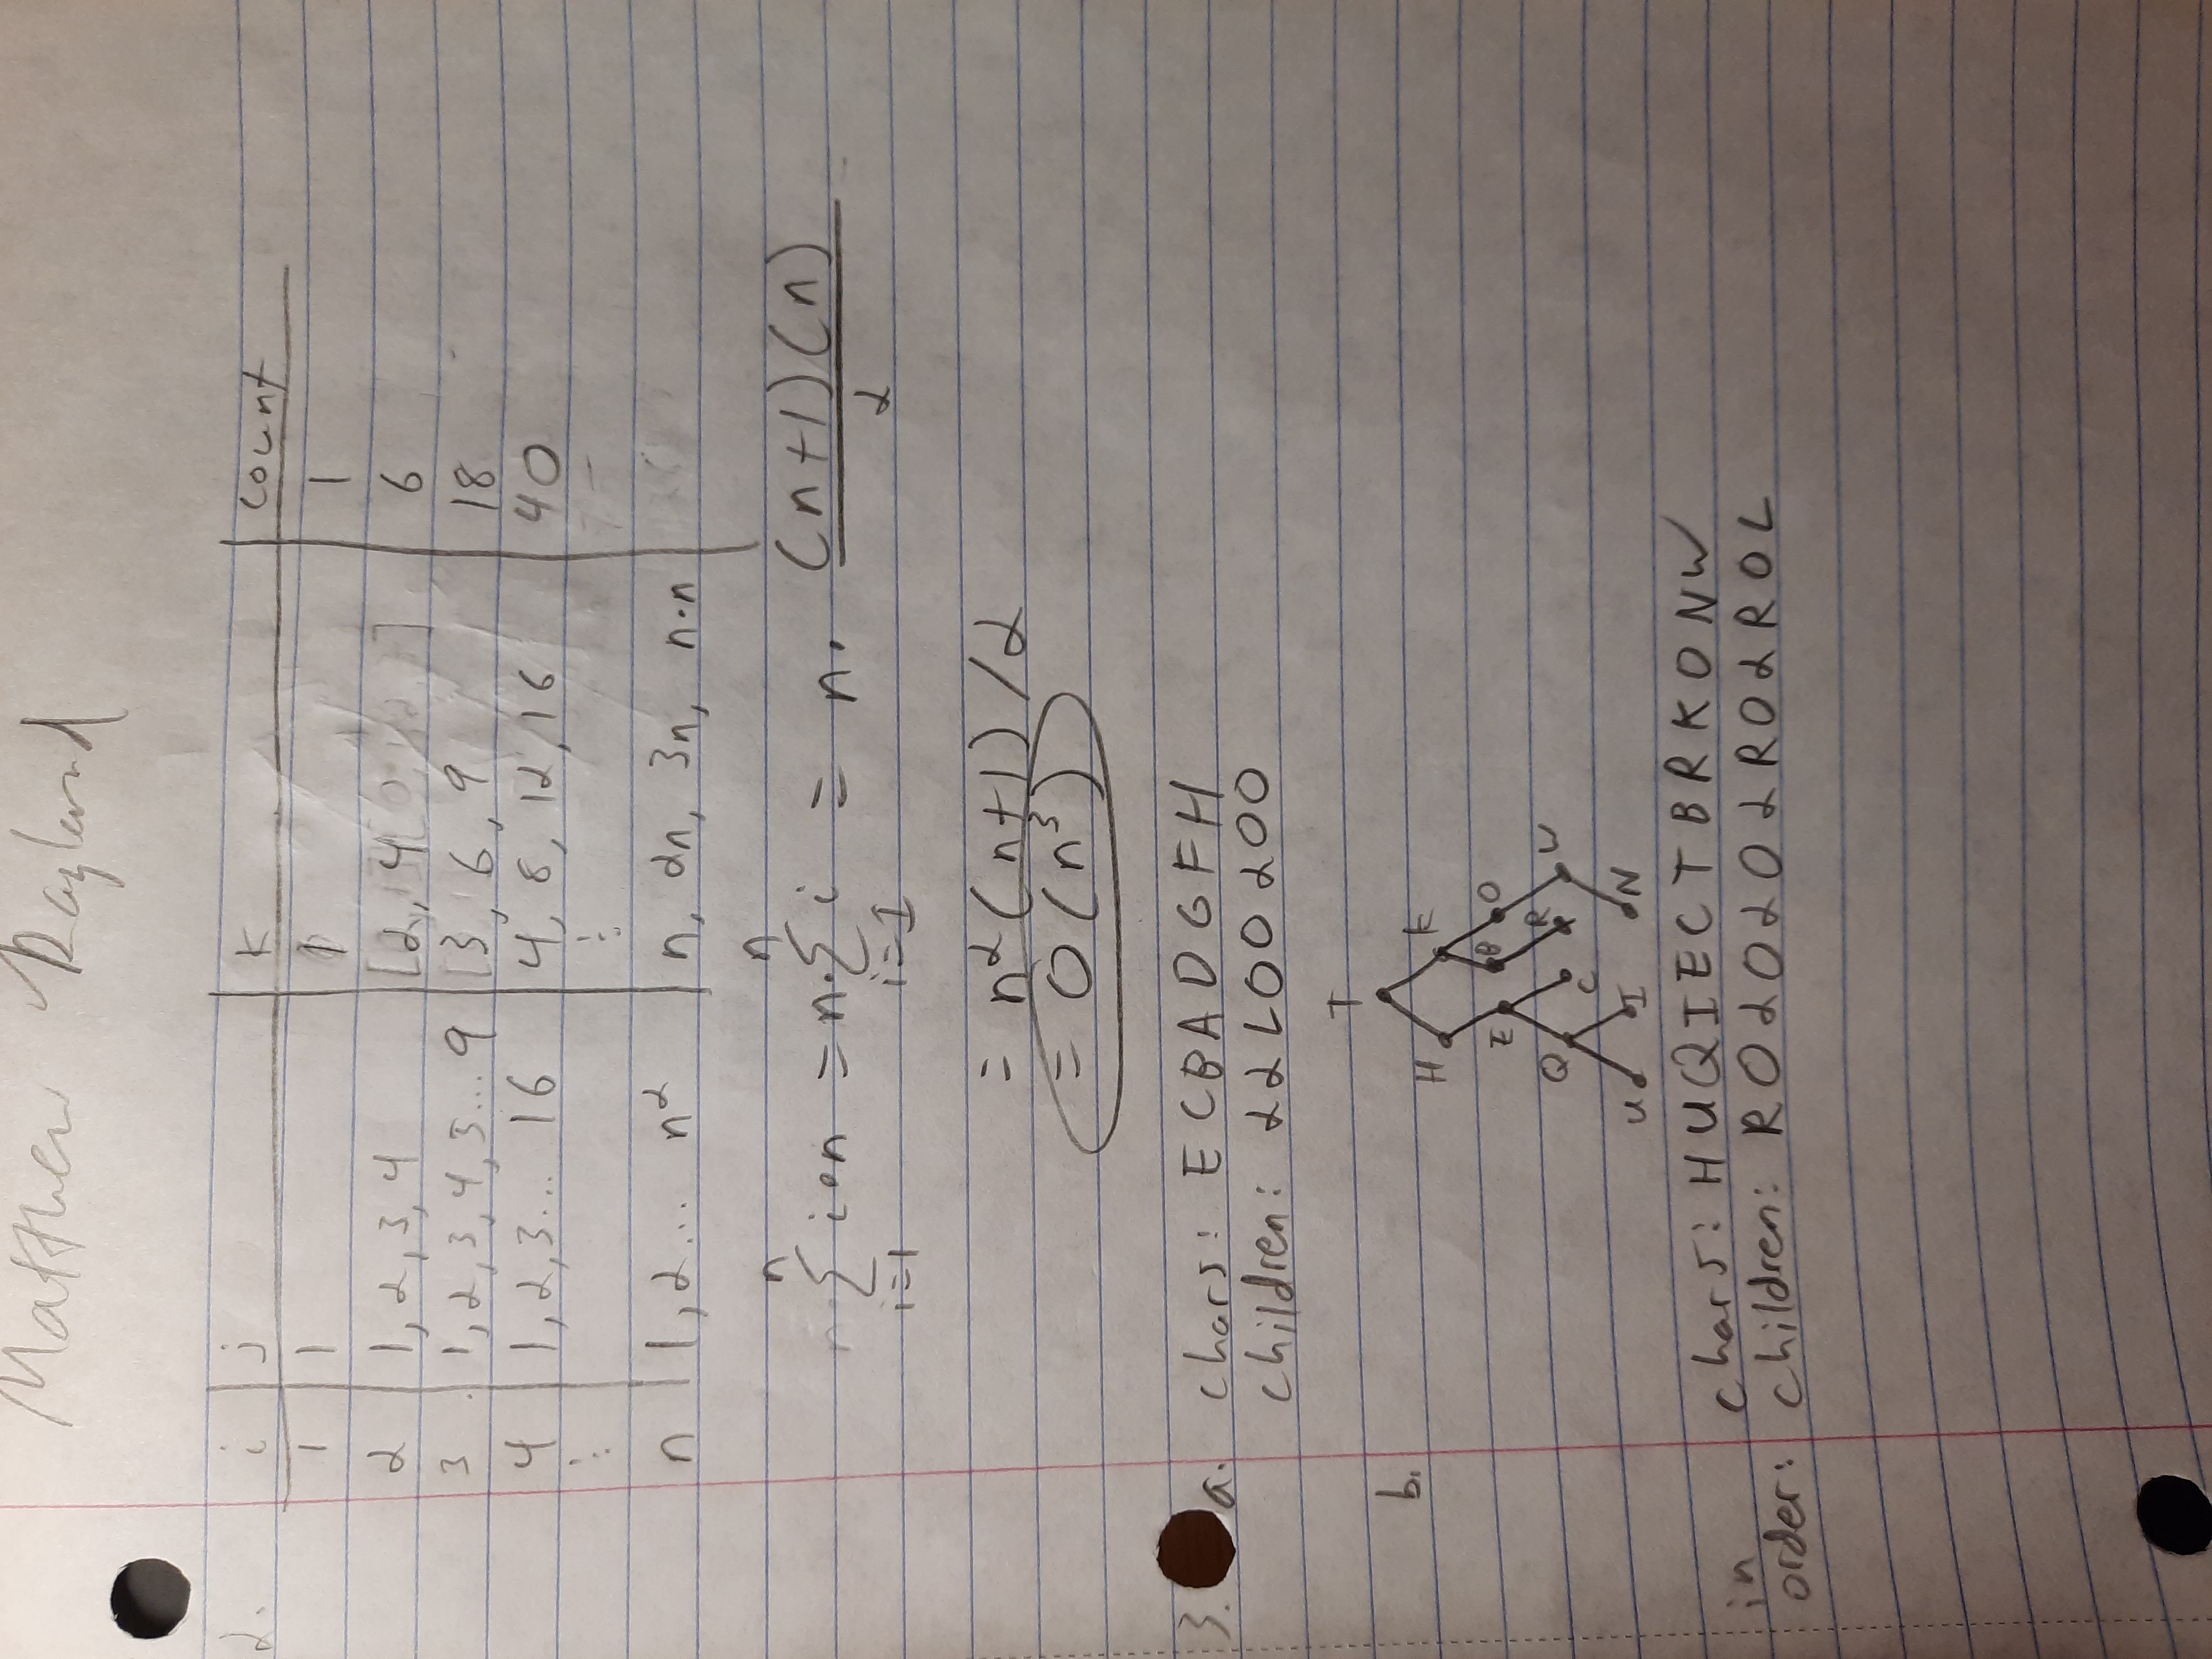 Matthew Ragland
2. i j k count
1 1 1 1
2 1, 2, 3, 4 [2, 4 ] 6
3 1, 2, 3, 4, 5... 9 [3, 6, 9 18
4 1, 2, 3... 16 4, 8, 12, 16 40
⋮ ⋮
n 1, 2... n² n, 2n, 3n, n·n
n n
Σ i·n = n·Σ i = n· (n+1)(n)
i=1 i=1 2
= n²(n+1)/2
= O(n³)
3. a. chars: E C B A D G F H
children: 2 2 L 0 0 2 0 0
T
b.
H K
E B O
Q C R W
U I N
chars: H U Q I E C T B R K O N W
in order: children: R 0 2 0 2 0 2 R 0 2 R 0 L